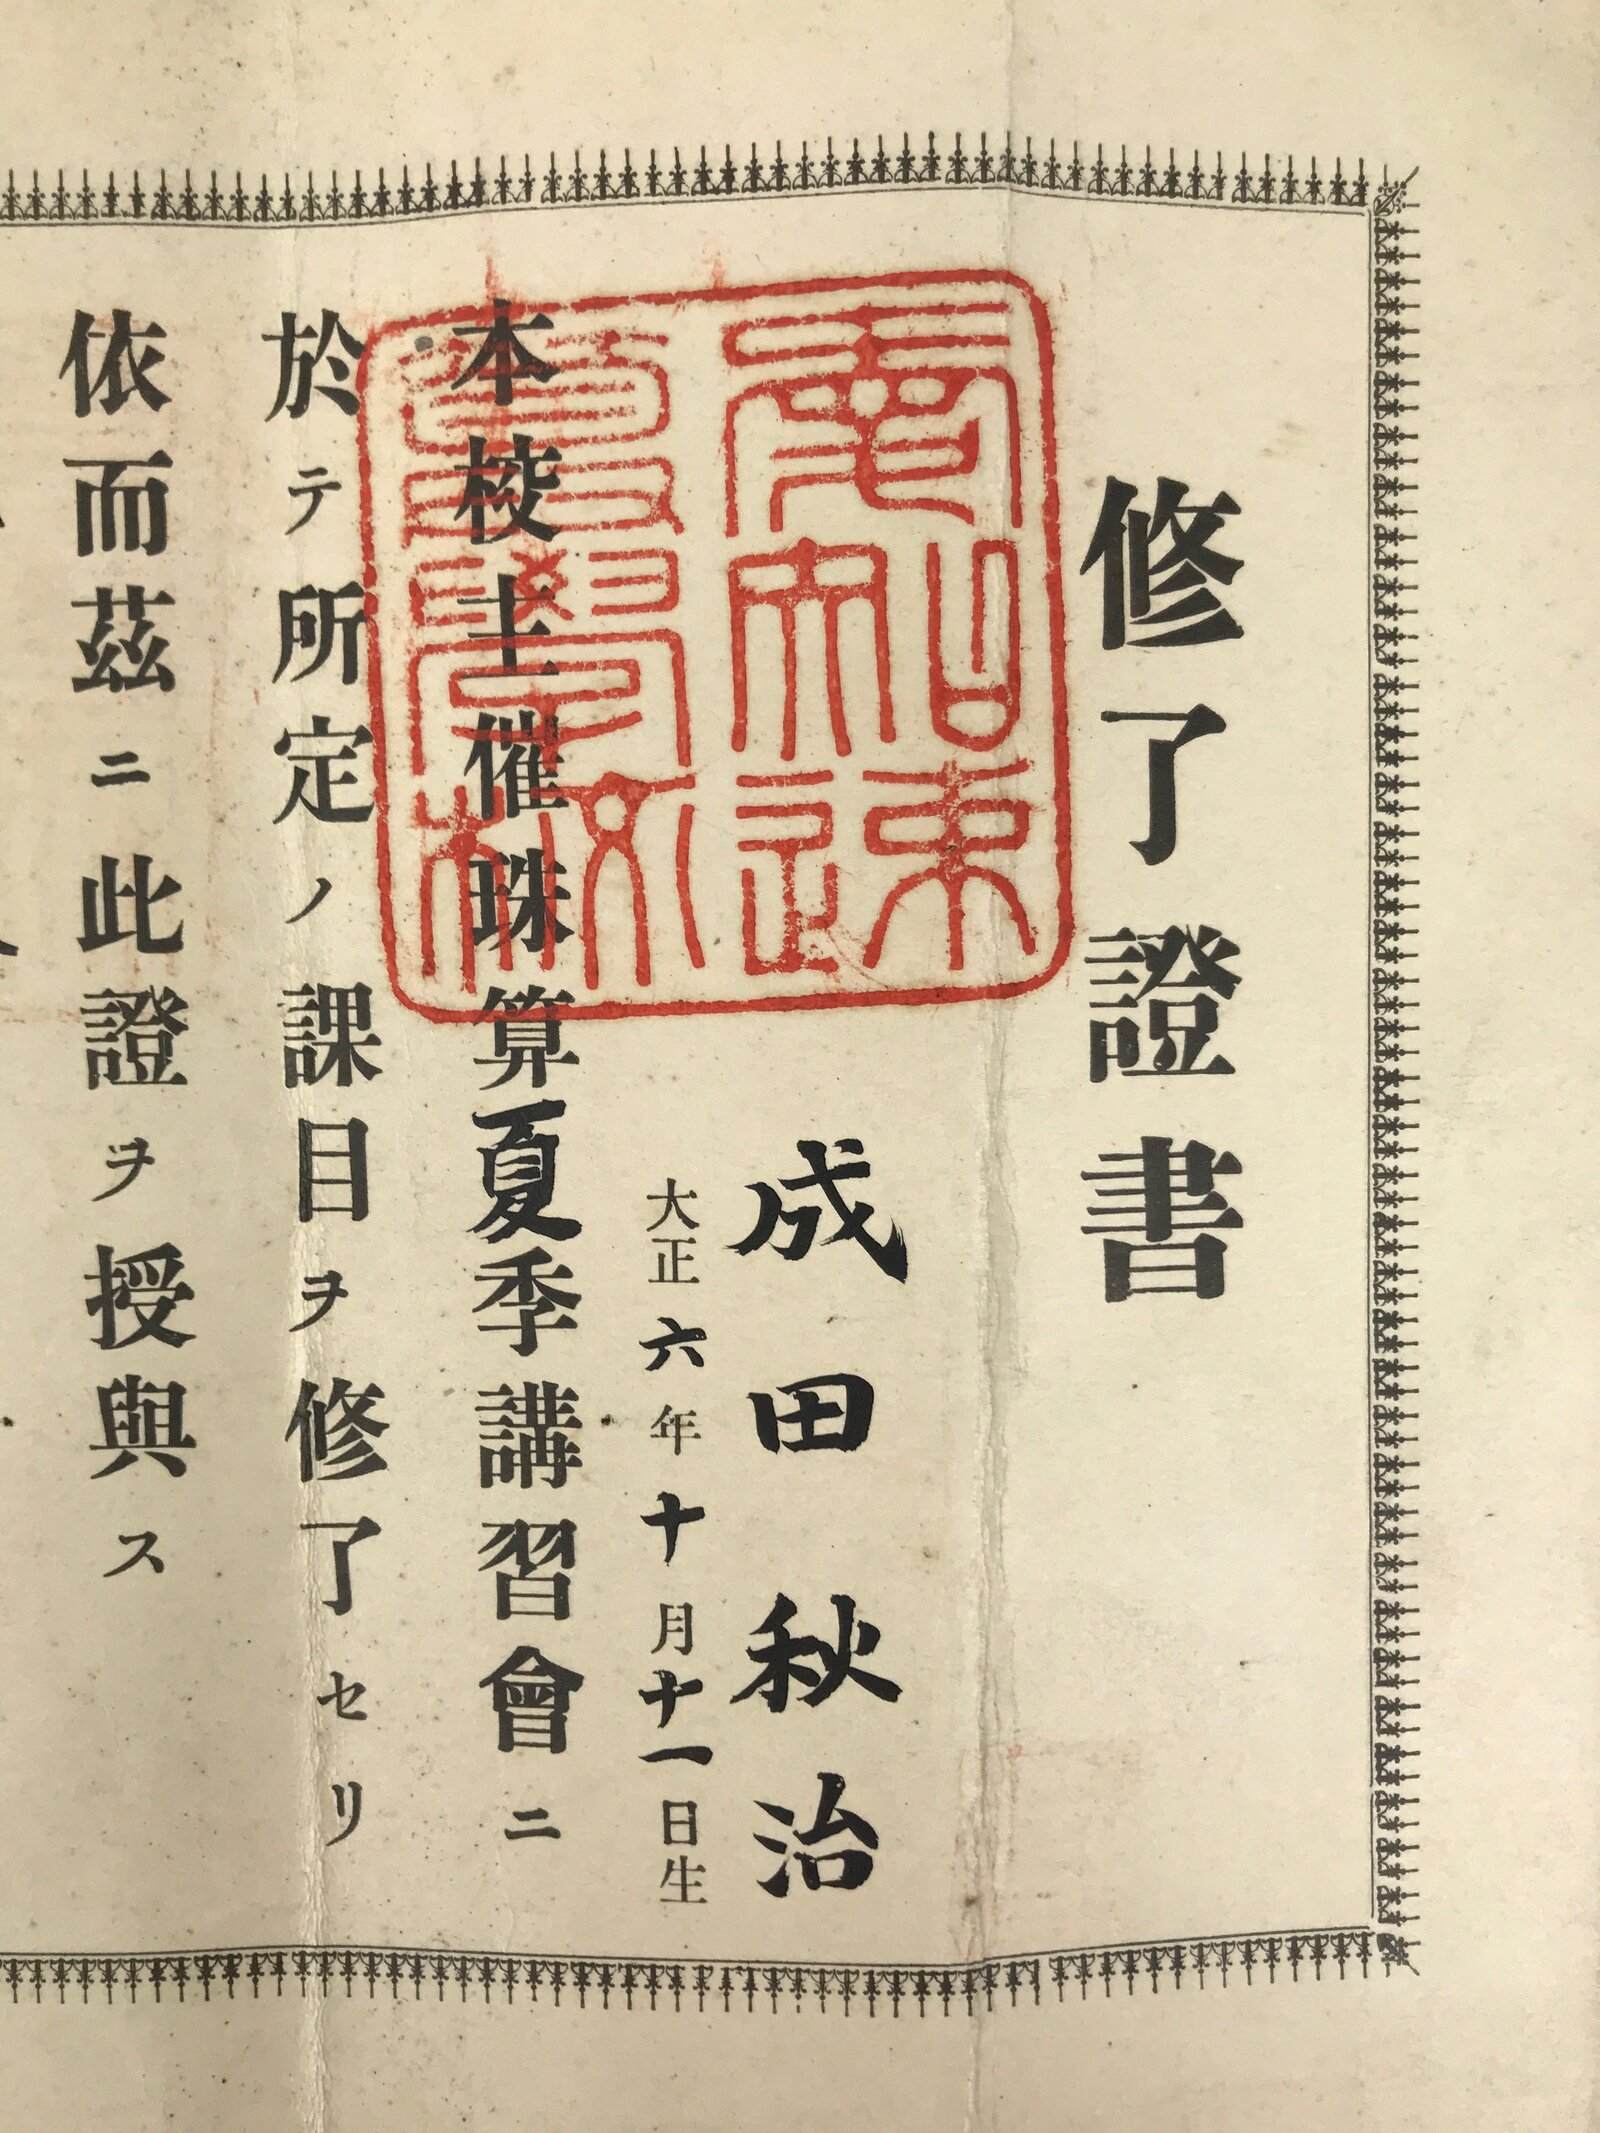 修了證書
成田秋治
大正六年十月十一日生
本校主催珠算夏季講習會ニ
於テ所定ノ課目ヲ修了セリ
依而茲ニ此證ヲ授與ス